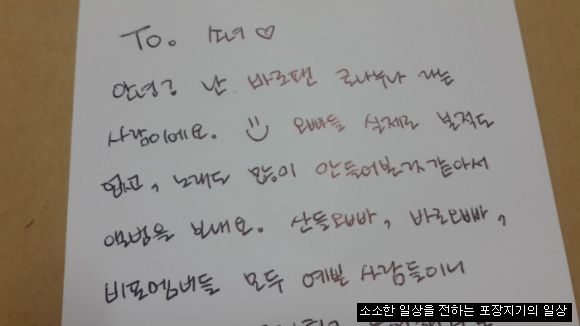 To. 소녀♡
안녕? 난 바로팬 로나누나 라는
사람이에요. 오빠들 실제로 본적도
없고, 노래도 많이 안들어본것같아서
앨범을 보내요. 산들오빠, 바로오빠,
비포엠네들 모두 예쁜 사람들이니
소소한 일상을 전하는 포장지기의 일상